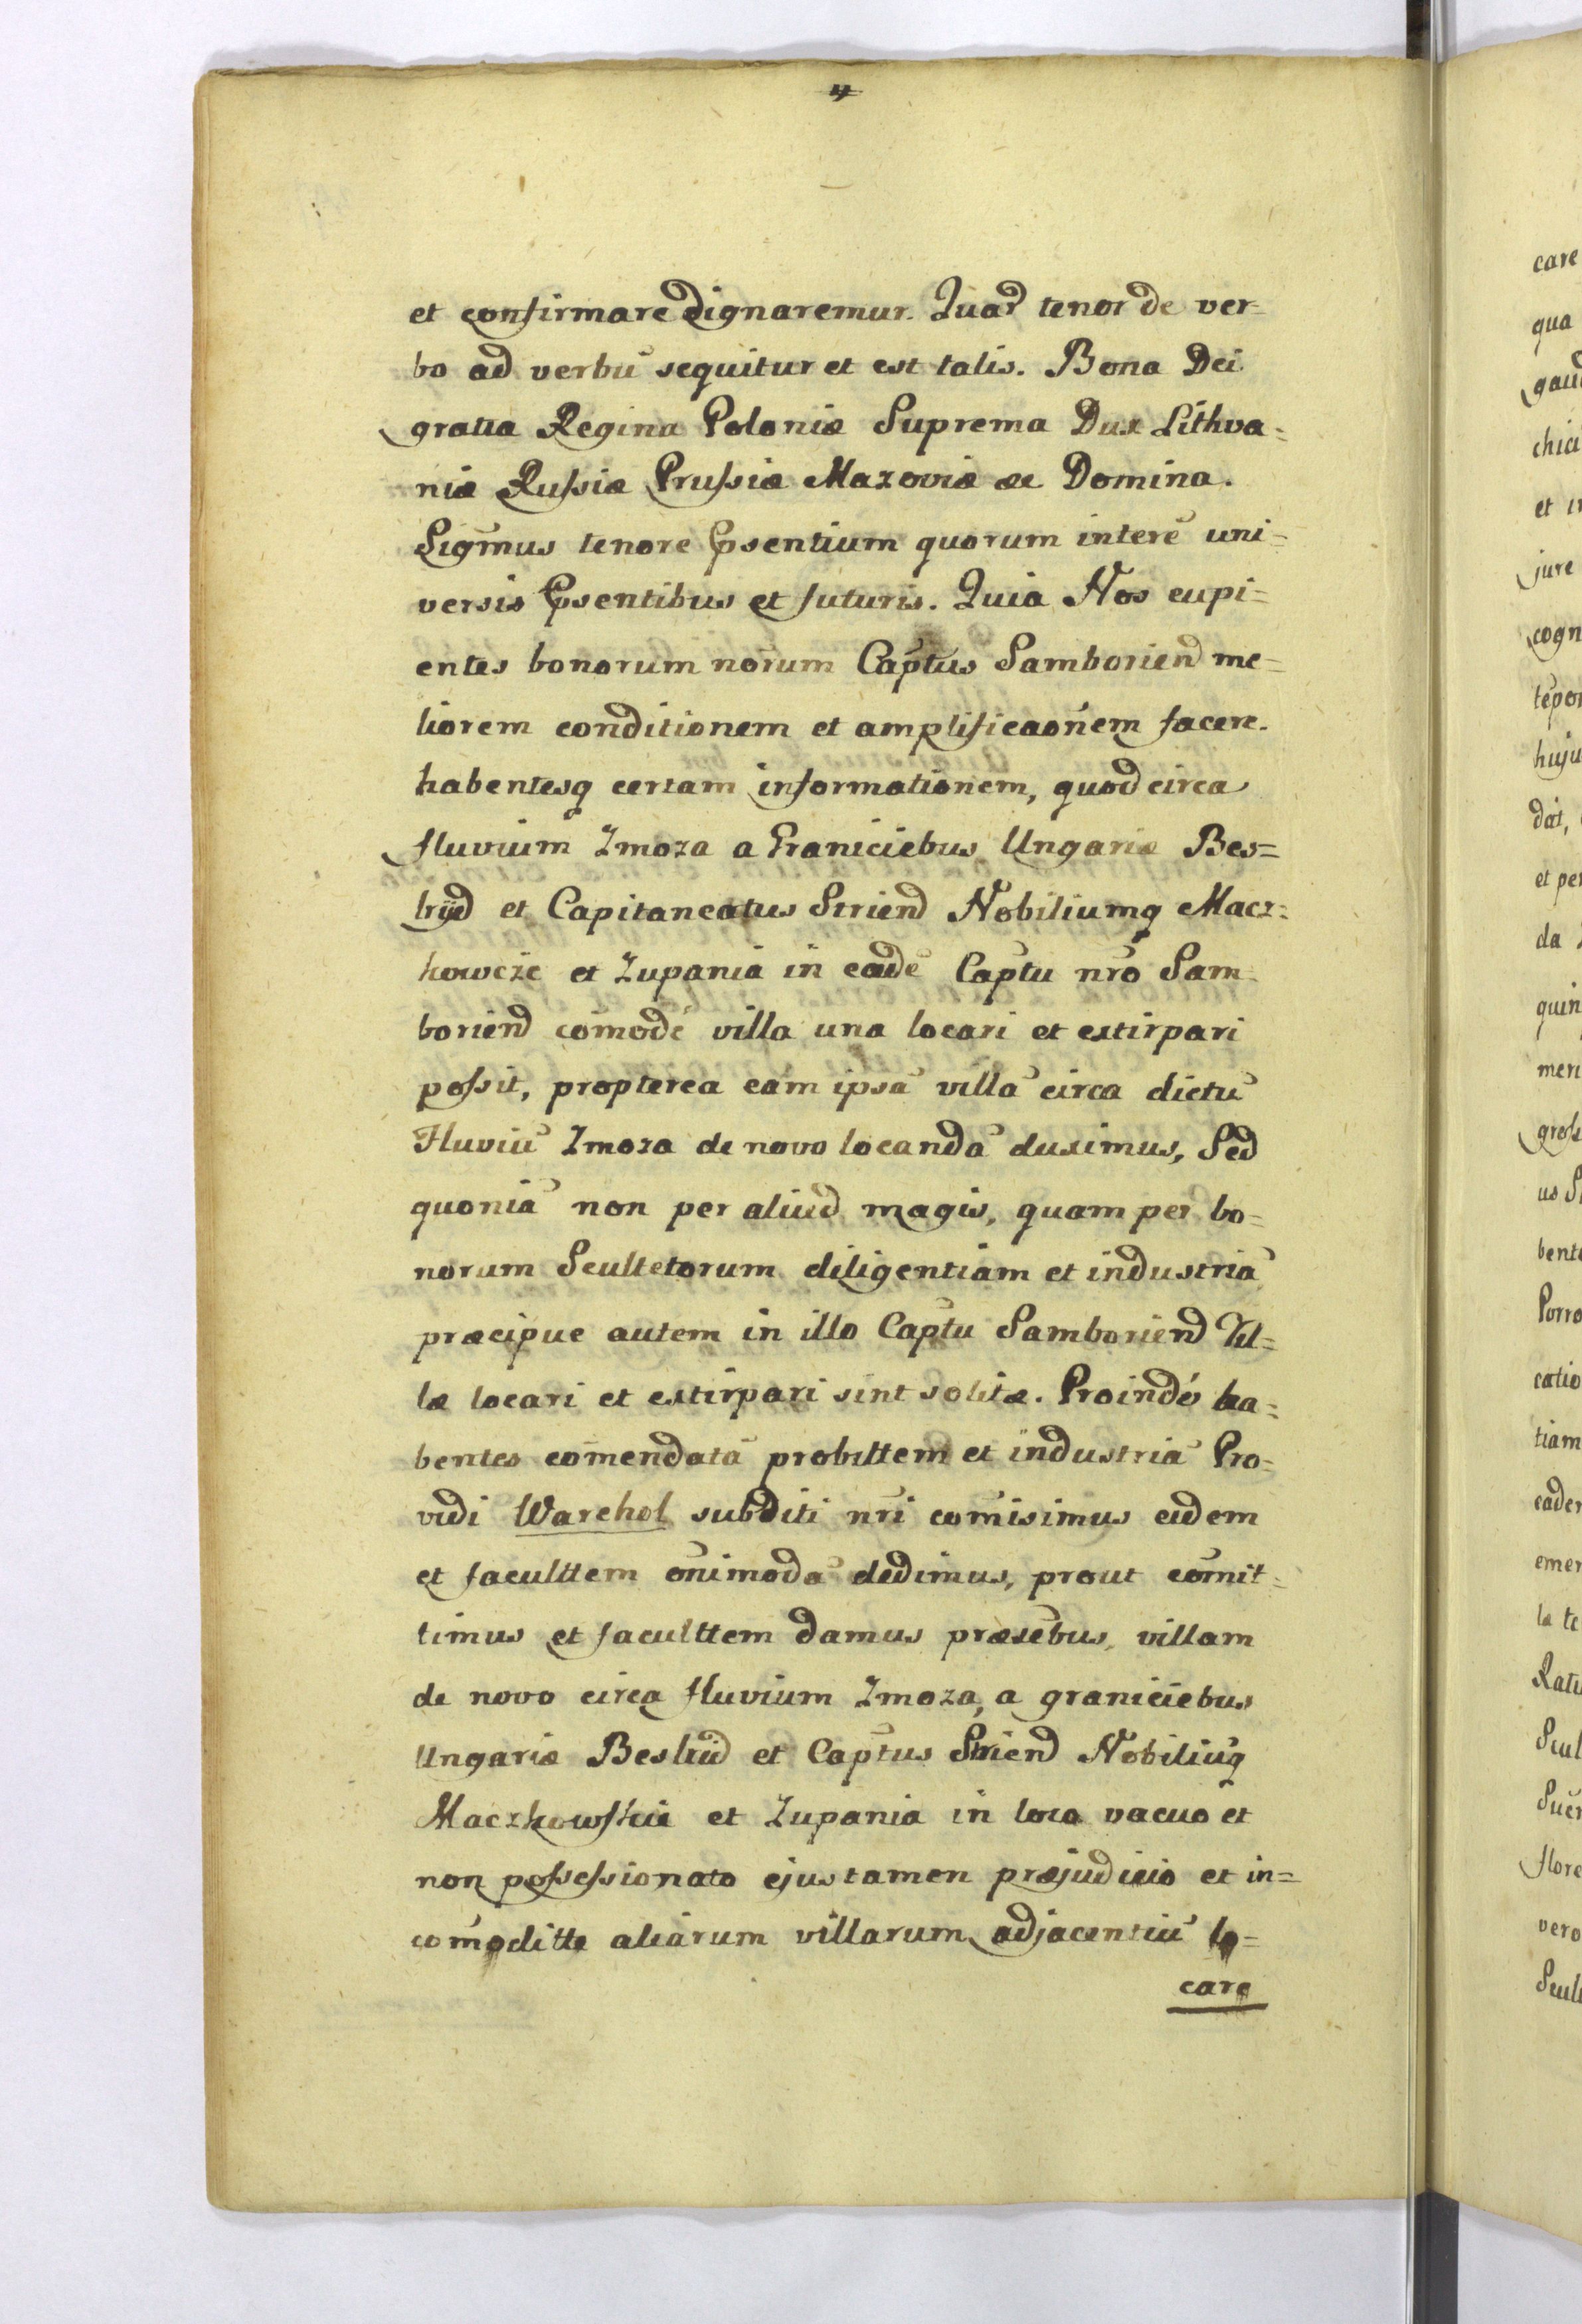 4
et confirmare dignaremur. Quar̃ tenor de ver-
bo ad verbũ sequitur et est talis. Bona Dei
gratia Regina Poloniæ Suprema Dux Lithva=
niæ Russiæ Prussiæ Mazoviæ &c Domina.
Sigm̃us tenore Psentium quorum interẽ uni=
versis Psentibus et futuris. Quia Nos cupi=
entes bonorum nõrum Cap̃tus Samborien̄d me=
liorem conditionem et amplificaoñem facere.
habentesq certam informationem, quod circa
fluvium Zmoza a Graniciebus Ungariæ Bes=
kijd et Capitaneatus Striend Nobiliumq Macz=
howcze et Zupania in eadẽ Cap̃tu nr̃o Sam-
boriend com̃odé villa una locari et extirpari
possit, propterea eam ipsã villã circa dictũ
Fluviũ Zmoza de novo locandã duximus, Sed
quoniã non per aliud magis, quam per bo=
norum Scultetorum diligentiam et industriã
præcipue autem in illo Cap̃tu Samboriend Vil=
læ locari et extirpari sint solitæ. Proindé ha=
bentes com̃endatã probittem et industriã Pro=
vidi Warchol subditi nr̃i com̃isimus eidem
et facultt̃em om̃nimodã dedimus, prout com̃it=
timus et facultt̃em damus præsẽbus, villam
de novo circa fluvium Zmoza, a graniciebus
Ungariæ Beskid et Cap̃tus Striend Nobiliũq
Maczkowskie et Zupania in loco vacuo et
non possessionato ejus tamen præjudicio et in=
com̃oditte aliarum villarum adjacentiũ lo=
care